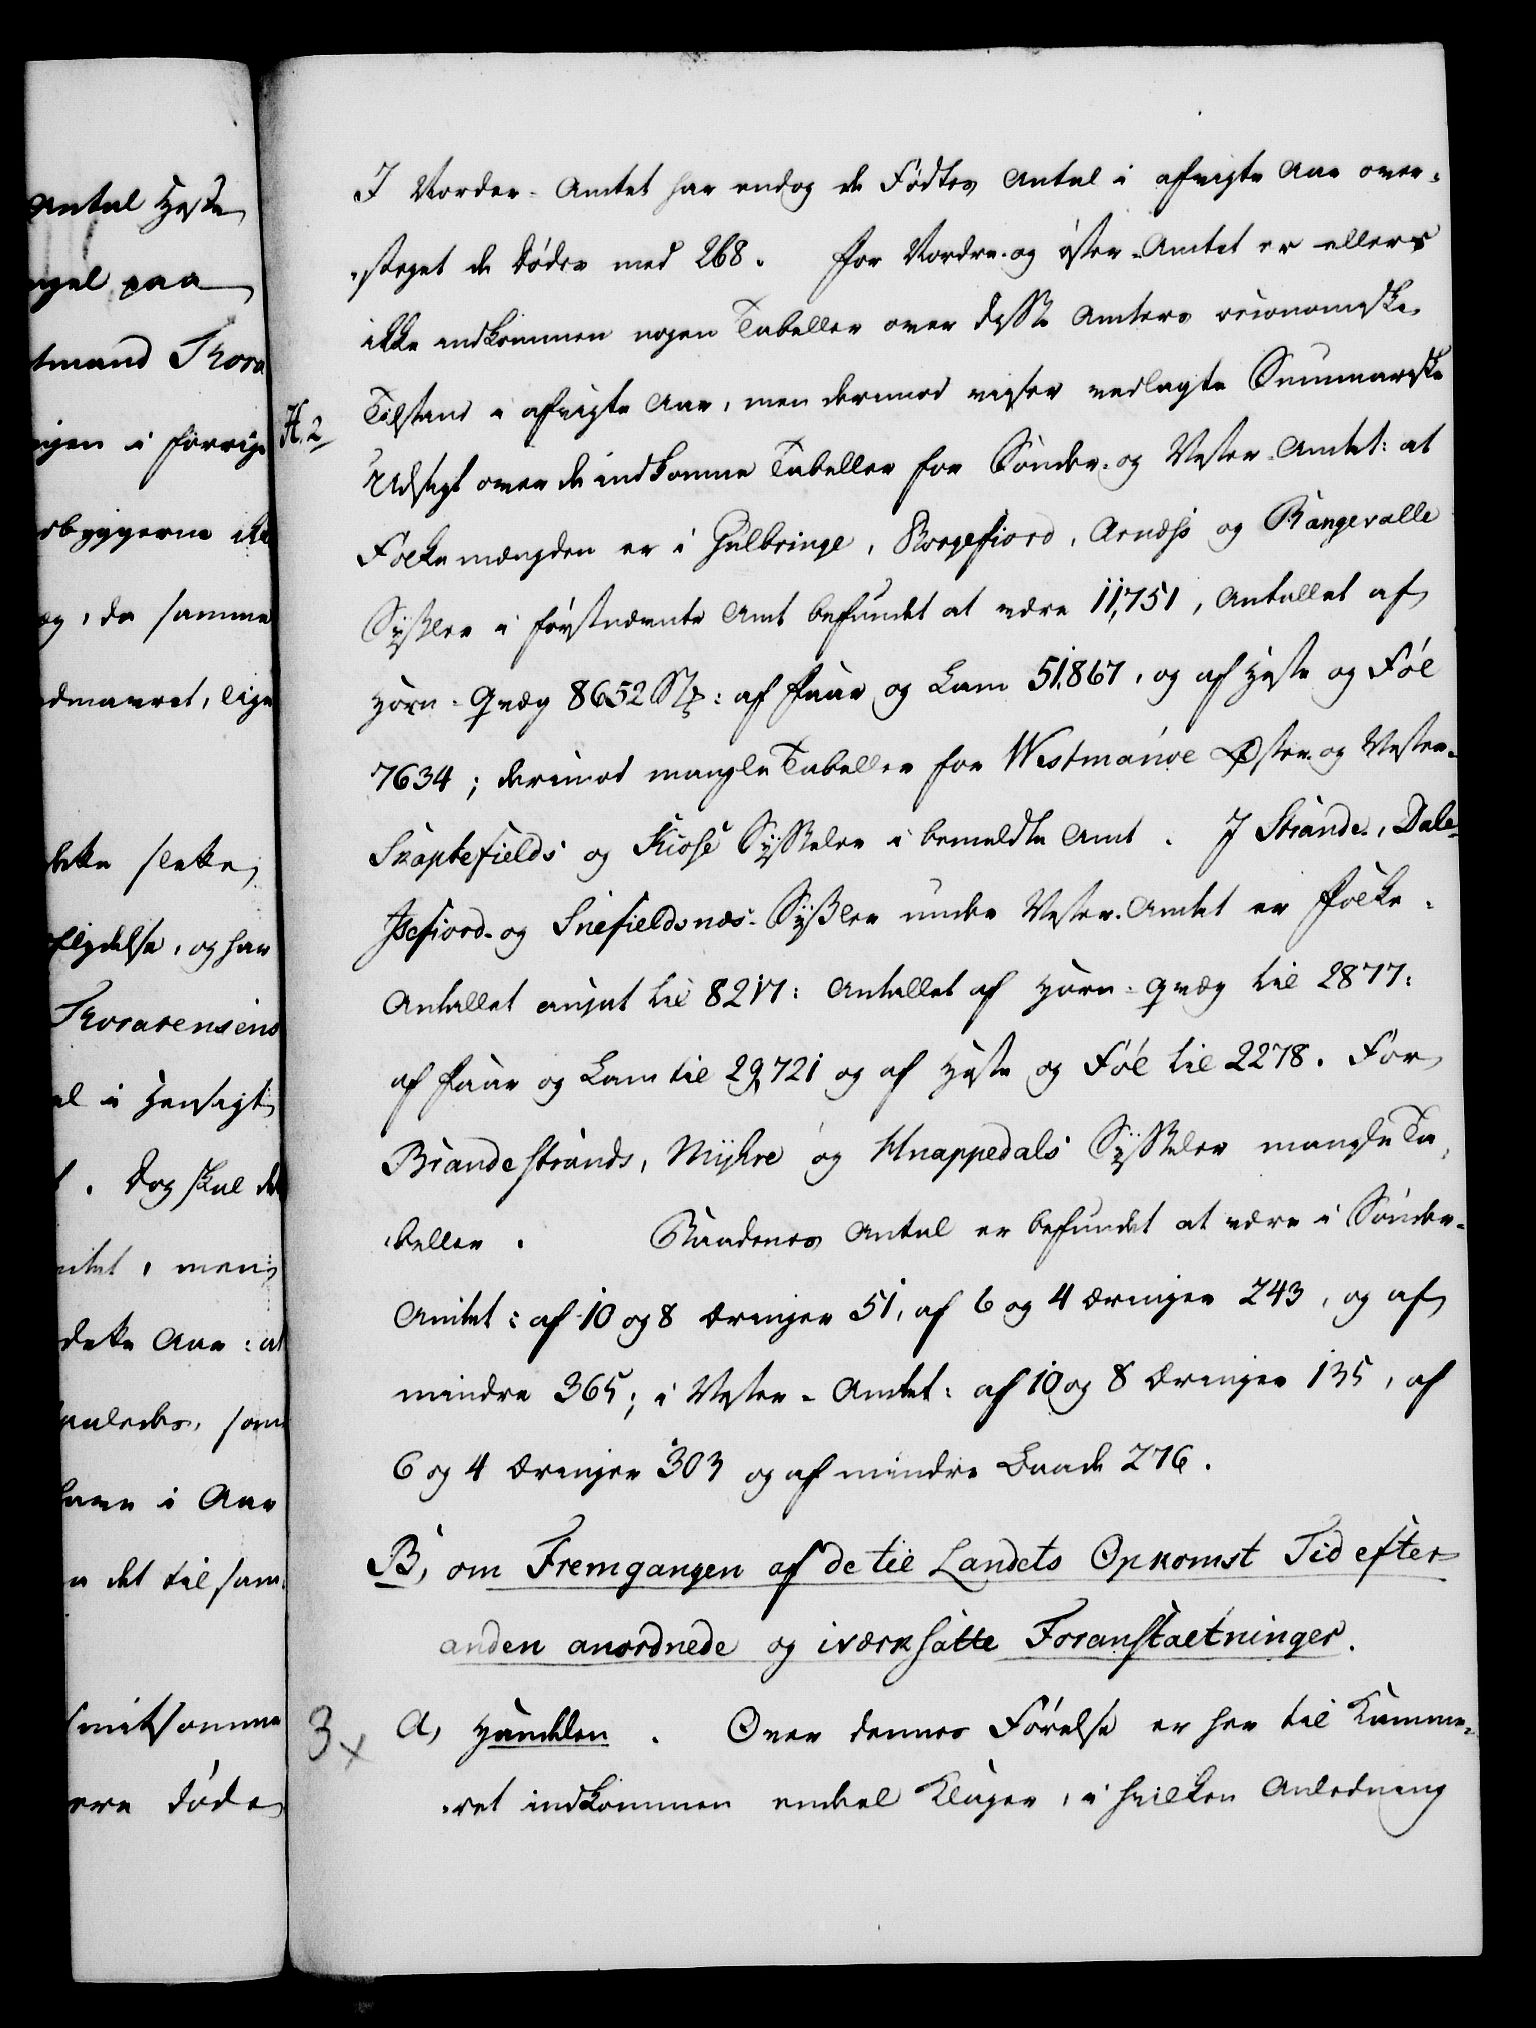 Antal Heste
ngel paa
tmand Thora
ngen i forrige
dbyggerne ik
eg, da samme
dmarret, lige
dette slette
flydelse, og har
Thorarensens
el i Hensigt
. Dog skal de
mtet, men
dette Aar: at
saaledes, som
have i Aar
n det til sam
smitsomme
ere døde
I Norder-Amtet har endog de Fødtes Antal i afvigte Aar over-
steget de Dødes med 268. For Nordre- og Øster-Amtet er ellers
ikke indkommen nogen Tabeller over disse Amters oeconomiske
Tilstand i afvigte Aar, men derimod viser vedlagte Summariske
H. 2
Udsigt over de indkomne Tabeller for Sønder- og Vester-Amtet: at
Folkemængden er i Gulbringe, Borgefiord, Arnæss og Rangevalle
Sysler i førstnævnte Amt befundet at være 11,751, Antallet af
Horn-Qvæg 8652 Stk: af Faar og Lam 51,867, og af Heste og Føl
7634; derimod mangle Tabeller for Westmanøe Øster- og Vester-
Skaptefields og Kiose Sysseler i bemeldte Amt. I Strande-, Dale-
Isefiord- og Snefieldsnæs-Sysler under Vester-Amtet er Folke-
Antallet angivet til 8217: Antallet af Horn-Qvæg til 2877:
af Faar og Lam til 29,721 og af Heste og Føl til 2278. For
Brandestrands, Myhre og Hnappedals Sysseler mangle Ta-
beller. Baadenes Antal er befundet at være i Sønder-
Amtet: af 10 og 8 Æringer 51, af 6 og 4 Æringer 243, og af
mindre 365; i Vester-Amtet: af 10 og 8 Æringer 135, af
6 og 4 Æringer 303 og af mindre Baade 276.
B, om Fremgangen af de til Landets Opkomst Tid efter
anden anordnede og iværksatte Foranstaltninger.
3x
a, Handelen. Over dennes Førelse er her til Kamme-
ret indkommen endeel Klager, i hvilken Anledning